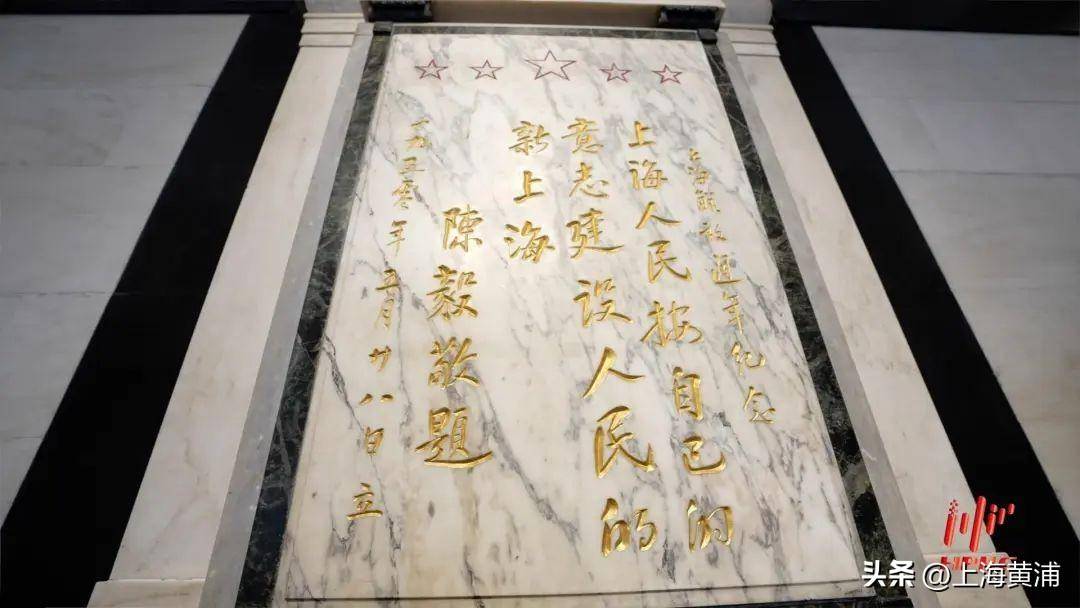 上海解放週年纪念
上海人民按自己的
意志建设人民的
新上海
陳毅敬題
一九五零年 五月廿八日 立
头条 @上海黄浦